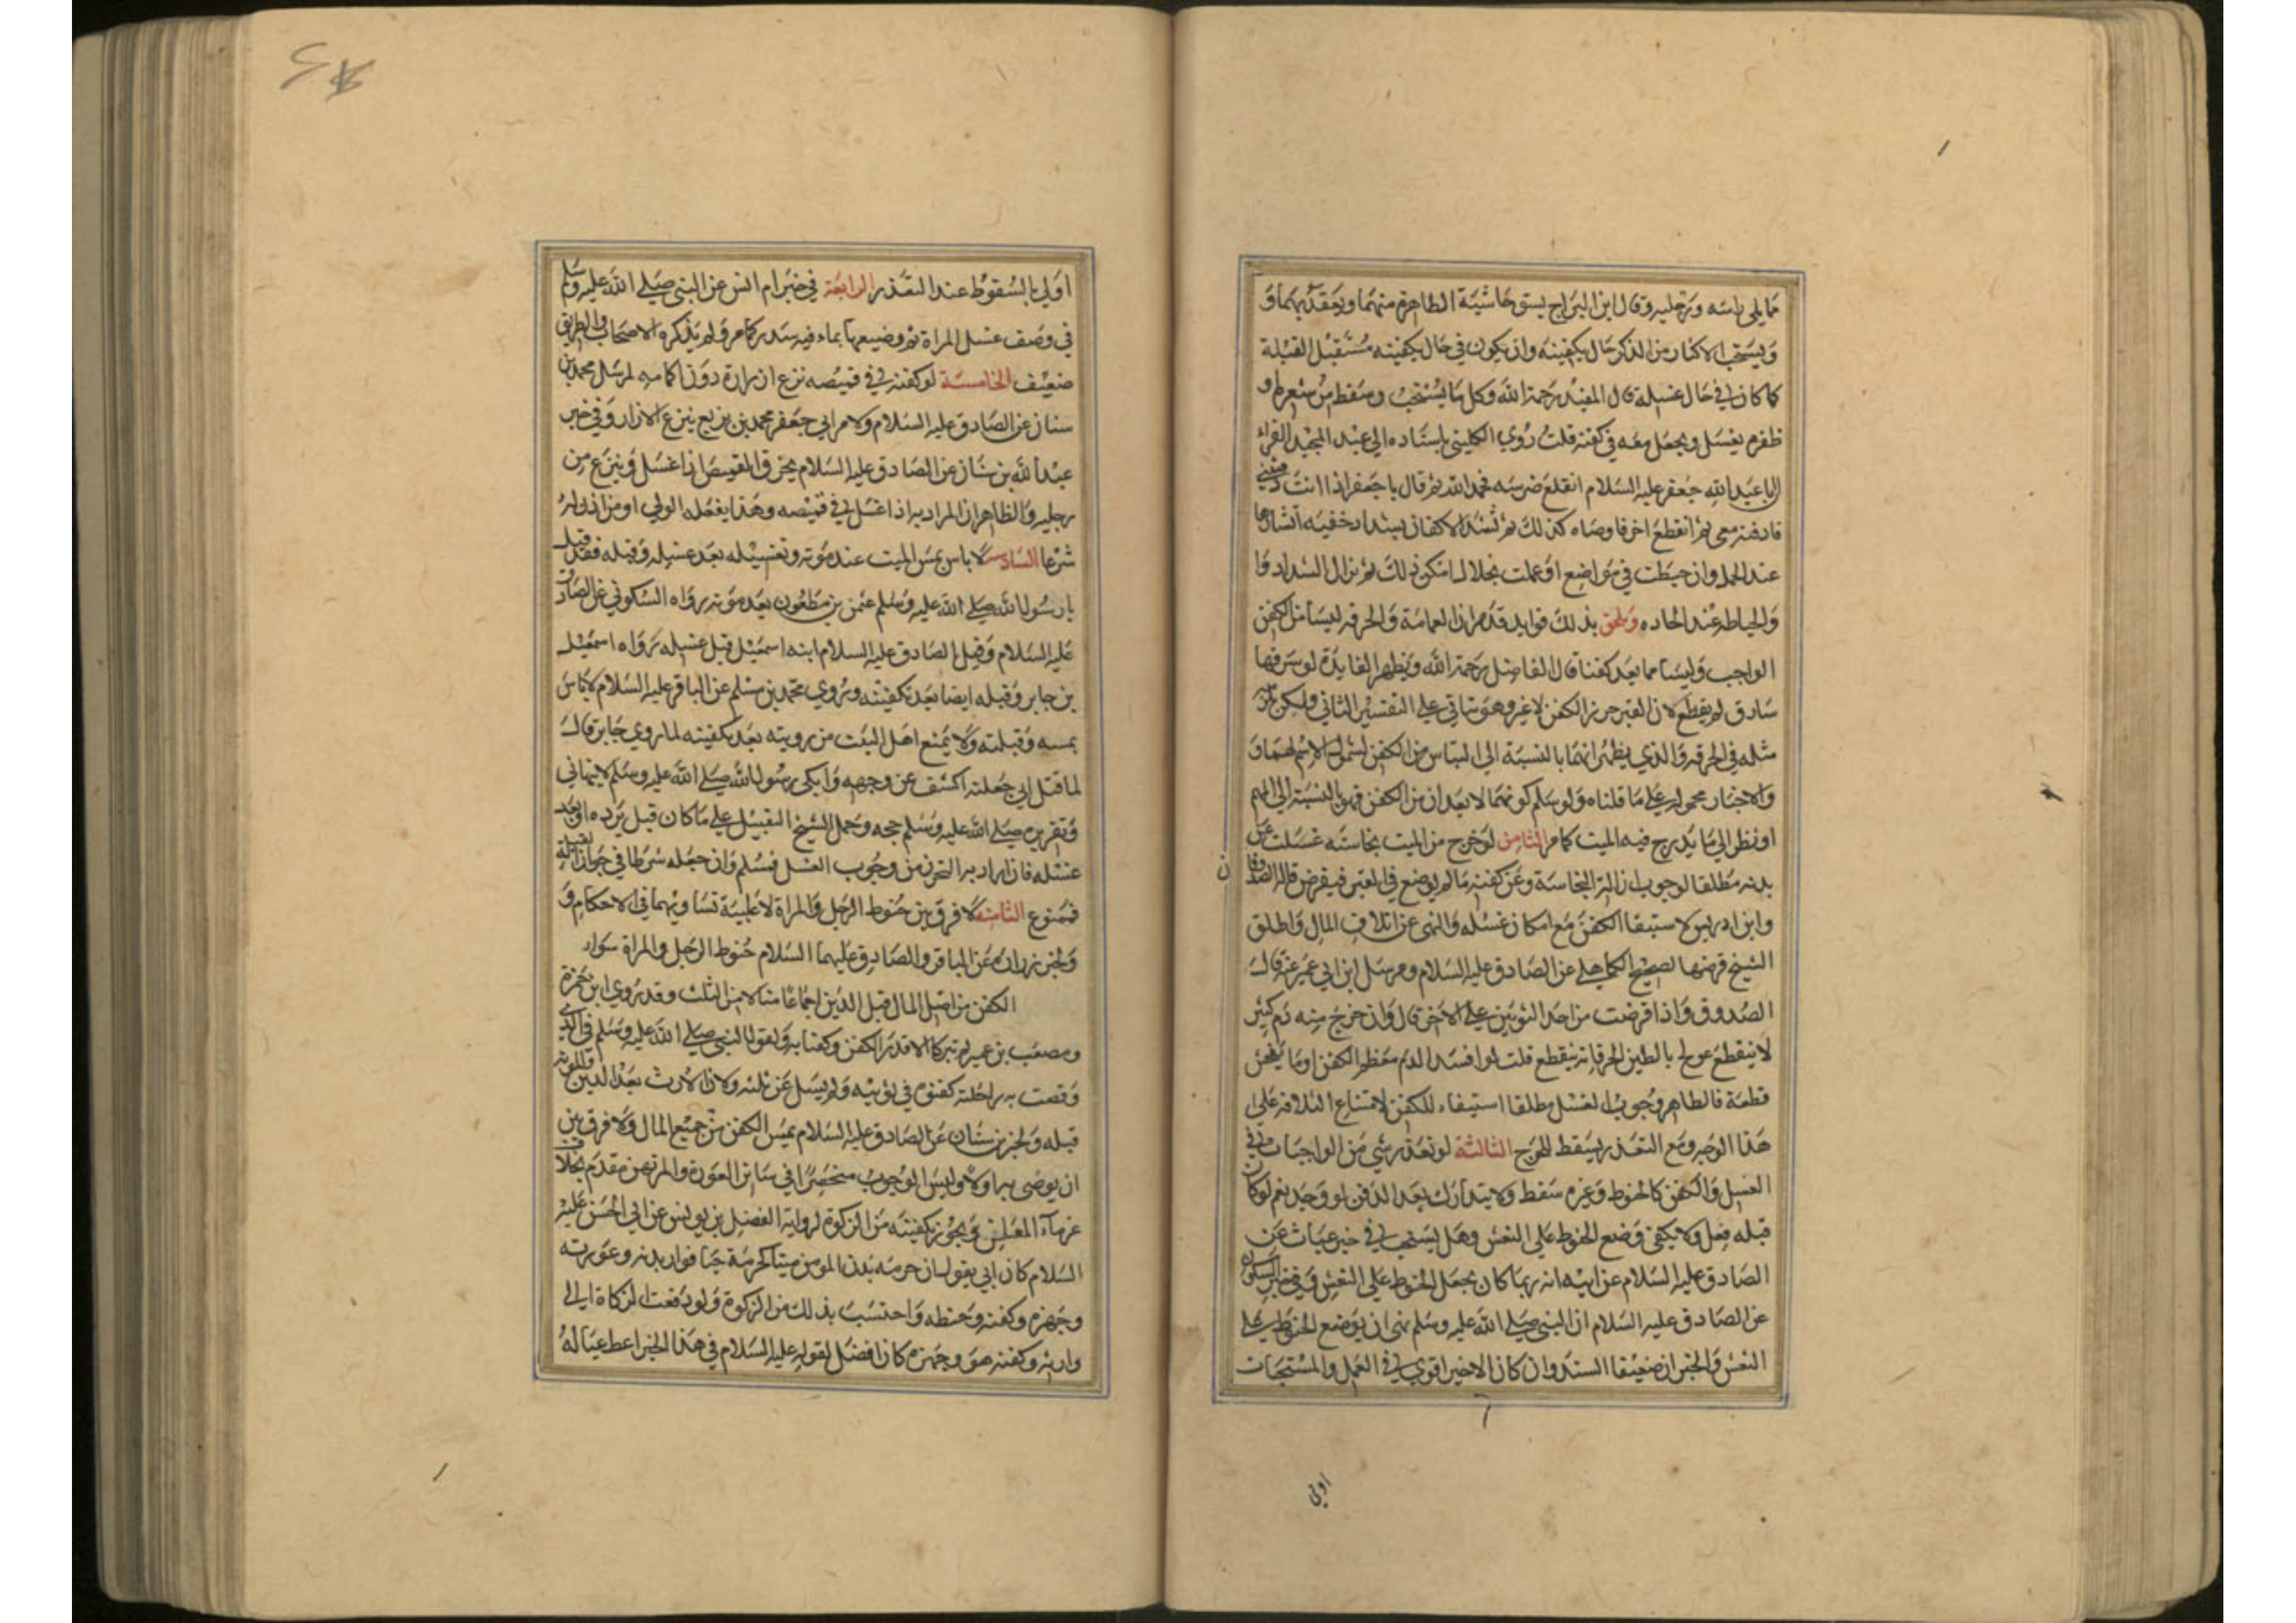 مما يلي راسه ورجليه وقال ابن البراج يشق حاشية الظاهرة منهما ويعقد بهما و
ويستحب الاكثار من الذكر حال تكفينه وان يكون في حال تكفينه مستقبل القبلة
كما كان في حال غسله قال المفيد رحمة الله وكل ما يستحب وسقط من شعره او
ظفره يغسل ويجعل معه في كفنه قلت روي الكليني باسناده الي عبد المجيد الفراء
ان ابا عبد الله جعفر عليه السلام انقلع ضرسه فحمد الله ثم قال يا جعفر اذا انت دفنتني
فادفنه معي ثم انقطع اخر فاوصاه كذلك ثم تشد الاكفان بشداد خفيه
عند الحمل وان خيطت في مواضع او عملت بخلال امكن ذلك ثم نزال الشداد و
والخياطة عند الحاده ويلحق بذلك فوايد قد مر ان العمامة والخرقه ليسا من الكفن
الواجب وليسا مما يعد كفنا قال الفاضل رحمة الله ويظهر الفايدة لو سرقها
سارق لم يقطع لان القبر حرز الكفن لا غير وهو يتاتي علي التفسير الثاني
مثله في الخرقه والذي يظهر انهما بالنسبة الي الناس من الكفن لشمول الاسم لهما و
والاخبار محموله علي ما قلناه ولو سلم كونهما لا يعدان من الكفن فهو بالنسبة الي المهم
او نظر الي ما يدرج فيه الميت كما مر الثامن لو خرج من الميت نجاسته غسلت عن
بدنه مطلقا لوجوب ازالة النجاسة وعن كفنه ما لم يوضع في القبر فيقرض قاله الصدوقان
وابن ادريس لاستبقاء الكفن مع امكان غسله والنهي عن اتلاف المال واطلق
الشيخ قرضها لصحيح الكاهلي عن الصادق عليه السلام ومرسل ابن ابي عمير عنه قال
الصدوق واذا قرضت من احد الثوبين علي الاخر قال وان خرج منه دم كثير
لا ينقطع عولج بالطين الحر فانه ينقطع قلت لو افسد الدم معظم الكفن او ما يفحش
قطعة فالظاهر وجوب الغسل مطلقا استيفاء للكفن لامتناع اتلافه علي
هذا الوجه ومع التعذر يسقط للحرج الثالثة لو تعذر شي من الواجبات في
الغسل والكفن كالحنوط وغيره سقط ولا يتدارك بعد الدفن لو وجد نعم لو كان
قبله فعل ولا يكفي وضع الحنوط علي النعش وهل يستحب في خبر غياث عن
الصادق عليه السلام عن ابيه انه ربما كان يجعل الحنوط علي النعش وفي خبر السكوني
عن الصادق عليه السلام ان النبي صلي الله عليه وسلم نهي ان يوضع الحنوط علي
النعش والخبران ضعيفا السند وان كان الاخير اقوي في العمل والمستحبات
اولي
اولي بالسقوط عند التعذر الرابعة في خبر ام انس عن النبي صلي الله عليه وسلم
في وصف غسل المراة ثم وضيعها بماء فيه سدر كما مر ولم يذكره الاصحاب والطريق
ضعيف الخامسة لو كفنه في قميصه نزع ازراره دون اكمامه لمرسل محمد بن
سنان عن الصادق عليه السلام ولامر ابي جعفر محمد بن بزيع ينزع الازرار وفي خبر
عبد الله بن سنان عن الصادق عليه السلام يخرق القميص اذا غسل وينزع من
رجليه والظاهر ان المراد به اذا غسل في قميصه وهذا يفعله الولي او من اذن له
شرعا السادس لا باس بمس الميت عند موته وتغسيله بعد غسله وقبله فقد قبل
رسول الله صلي الله عليه وسلم عثمن بن مظعون بعد موته رواه السكوني عن الصادق
عليه السلام وقبل الصادق عليه السلام ابنه اسمعيل قبل غسله رواه اسمعيل
بن جابر وقبله ايضا بعد تكفينه وروي محمد بن مسلم عن الباقر عليه السلام لا باس
بمسه وقبلته ولا يمنع اهل الميت من رويته بعد تكفينه لما روي جابر قال
لما قتل ابي جعلت اكشف عن وجهه وابكي رسول الله صلي الله عليه وسلم لا ينهاني
وتقريره صلي الله عليه وسلم حجه وحمل الشيخ التقبيل علي ما كان قبل برده او بعد
غسله فان اراد به التحرز من وجوب الغسل فمسلم وان جعله شرطا في جواز التقبيل
فممنوع الثامنه لا فرق بين حنوط الرجل والمراة لاغلبية تساويهما في الاحكام و
ولخبر زرارة عن الباقر والصادق عليهما السلام حنوط الرجل والمراة سواء
الكفن من اصل المال قبل الدين اجماعا منا لا من الثلث وقد روي ان حمزة
ومصعب بن عمير لم يتركا الا قدر الكفن وكفنا به ولقول النبي صلي الله عليه وسلم في الذي
وقصت به راحلته كفنوه في ثوبيه ولم يسل عن ثلثه ولان الارث بعد الدين والمؤنه
قبله ولخبر بن سنان عن الصادق عليه السلام ثمن الكفن من جميع المال ولا فرق بين
ان يوصي به اولا وليس الوجوب منحصرا في ساتر العورة والمرتهن مقدم بخلاف
غرماء المفلس ويجوز تكفينه من الزكوة لرواية الفضل بن يونس عن ابي الحسن عليه
السلام كان ابي يقول ان حرمة بدن المومن ميتا كحرمته حيا فوار بدنه وعورته
وجهزه وكفنه وحنطه واحتسب بذلك من الزكوة ولو دفعت الزكاة الي
وارثه وكفنه هو وجهزه كان افضل لقوله عليه السلام في هذا الخبر اعط عياله